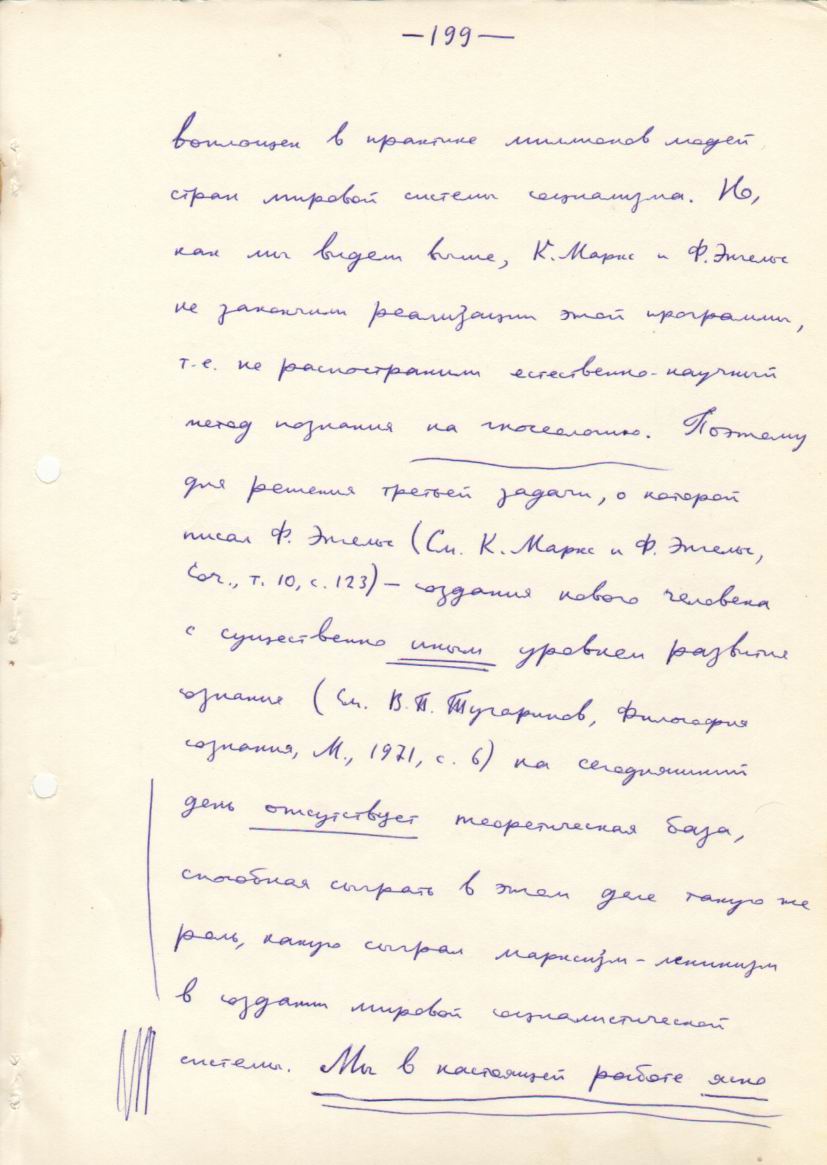 —199—
воплощен в практике миллионов людей
стран мировой системы социализма. Но,
как мы видели выше, К. Маркс и Ф. Энгельс
не закончили реализации этой программы,
т.е. не распостранили естественно-научный
метод познания на гносеологию. Поэтому
для решения третьей задачи, о которой
писал Ф. Энгельс (См. К. Маркс и Ф. Энгельс,
Соч., т. 10, с. 123) — создания нового человека
с существенно иным уровнем развития
сознания (См. В.П. Тугаринов, Философия
сознания, М., 1971, с. 6) на сегодняшний
день отсутствует теоретическая база,
способная сыграть в этом деле такую же
роль, какую сыграл марксизм-ленинизм
в создании мировой социалистической
системы. Мы в настоящей работе ясно